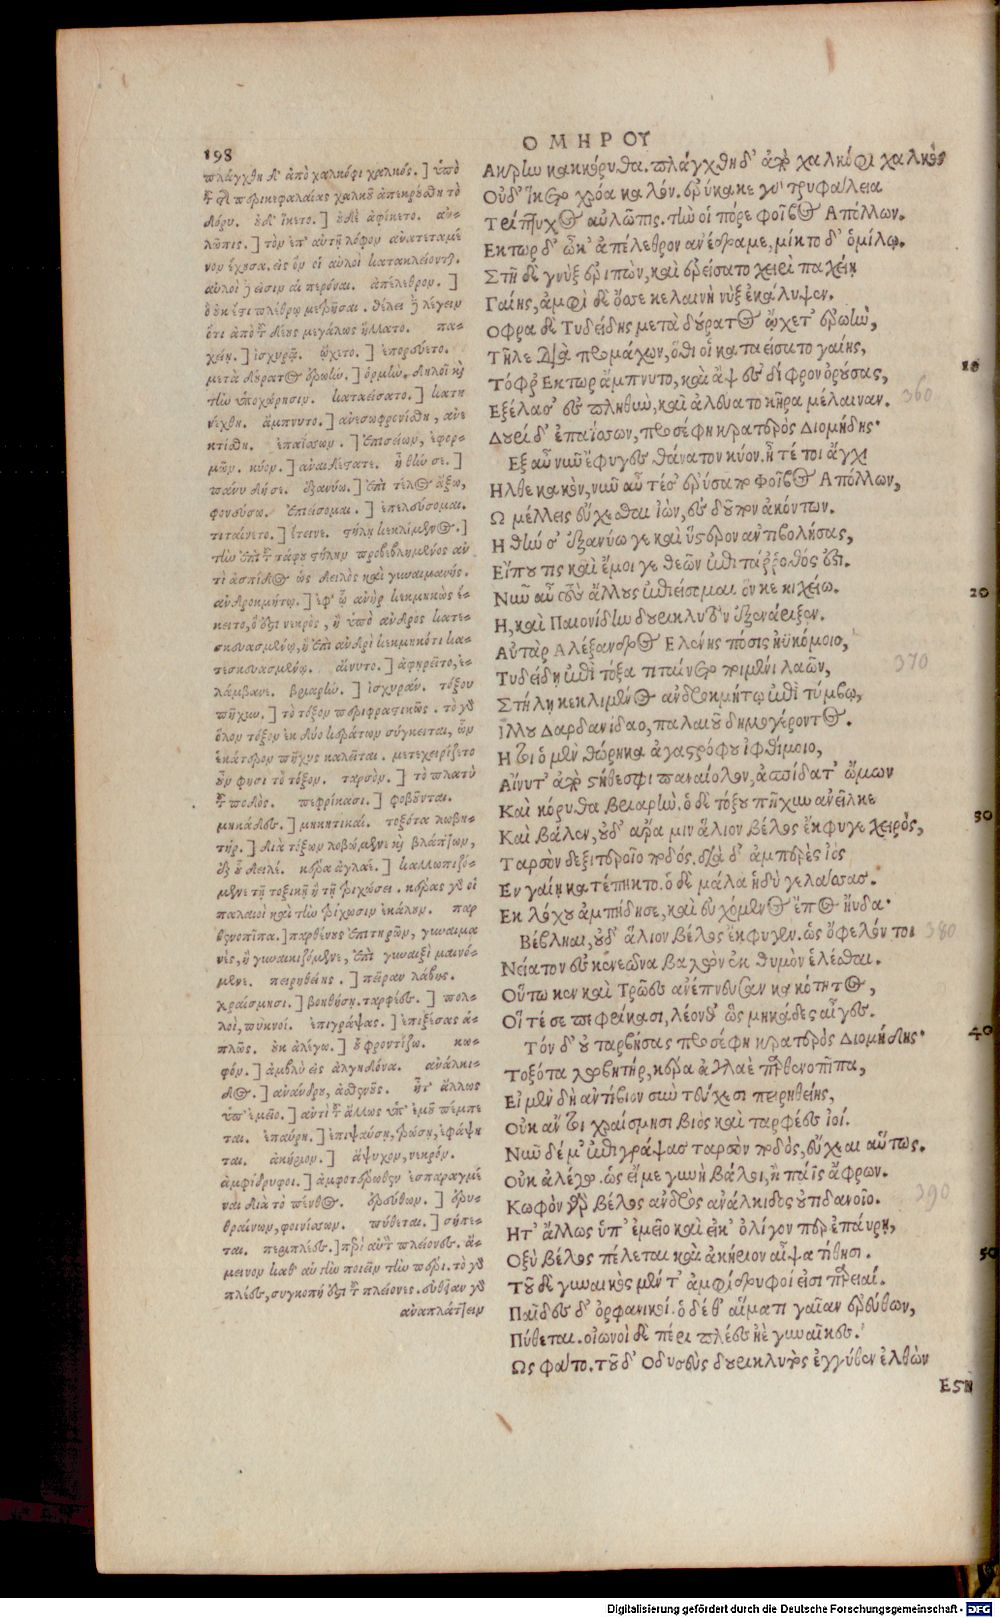 198
ΟΜΗΡΟΥ
πλάγχθη δ' ἀπὸ χαλκόφι χαλκός.] ὑπὸ
τῆς περικεφαλαίας χαλκοῦ ἀπεκρούσθη τὸ
δόρυ. οὐδ' ἵκετο.] οὐδὲ ἀφίκετο. αὐ-
λῶπις.] τὸν ἐπ' αὐτῇ λόφον ἀνατεταμέ
νον ἔχουσα. εἰς ὃν οἱ αὐλοὶ κατακλείονται.
αὐλοὶ δέ εἰσιν αἱ περόναι. ἀπέλεθρον.]
ὃ οὐκ ἔστι πλέθρῳ μετρῆσαι. θέλει δὲ λέγειν
ὅτι ἀπὸ τοῦ δέους μεγάλως ἥλλατο. πα-
χείῃ.] ἰσχυρᾷ. ᾤχετο.] ἐπορεύετο.
μετὰ δούρατος ἐρωήν.] ὁρμήν. δηλοῖ καὶ
τὴν ὑποχώρησιν. καταείσατο.] κατη
νέχθη. ἄμπνυτο.] ἀνεσωφρονίσθη, ἀνε
κτίσθη. ἐπαΐσσων.] ἐπισείων, ἐφορ-
μῶν. κύον.] ἀναιδέστατε. ἦ θήν σε.]
πάνυ δή σε. ἐξανύω.] ἐπὶ τέλος ἄξω,
φονεύσω. ἐπιείσομαι.] ἐπελεύσομαι.
τιταίνετο.] ἔτεινε. στήλῃ κεκλιμένος.]
τὴν ἐπὶ τοῦ τάφου στήλην προβεβλημένος ἀν
τὶ ἀσπίδος ὡς δειλὸς καὶ γυναιμανής.
ἀνδροκμήτῳ.] ἐφ' ᾧ ἀνὴρ κεκμηκὼς ἔ-
κειτο, ὅ ἐστι νεκρὸς, ἢ ὑπὸ ἀνδρὸς κατε-
σκευασμένῳ, ἢ ἐπὶ ἀνδρὶ κεκμηκότι κα-
τεσκευασμένῳ. αἴνυτο.] ἀφῃρεῖτο, ἐ-
λάμβανε. βριαρήν.] ἰσχυράν. τόξου
πῆχυν.] τὸ τόξον περιφραστικῶς. τὸ γὰρ
ὅλον τόξον ἐκ δύο κεράτων σύγκειται, ὧν
ἑκάτερον πῆχυς καλεῖται. μετεχειρίζετο
οὖν φησι τὸ τόξον. ταρσόν.] τὸ πλατὺ
τοῦ ποδός. πεφρίκασι.] φοβοῦνται.
μηκάδες.] μηκητικαί. τοξότα λωβη-
τήρ.] διὰ τόξων λοβώμενε καὶ βλάπτων,
ἐξ οὗ δειλέ. κέρα ἀγλαέ.] καλλωπιζό-
μενε τῇ τοξικῇ ἢ τῇ τριχώσει. κέρας γὰρ οἱ
παλαιοὶ καὶ τὴν τρίχωσιν ἐκάλουν. παρ
θενοπῖπα.] παρθένους ἐπιτηρῶν, γυναιμα
νὲς, ἢ γυναικιζόμενε, ἐπὶ γυναιξὶ μαινό-
μενε. πειρηθείης.] πεῖραν λάβῃς.
χραίσμησι.] βοηθήσῃ. ταρφέες.] πολ-
λοὶ, πυκνοί. ἐπιγράψας.] ἐπιξέσας ἁ-
πλῶς. οὐκ ἀλέγω.] οὐ φροντίζω. κω-
φόν.] ἀμβλὺ εἰς ἀλγηδόνα. ἀνάλκι-
δος.] ἀνάνδρου, ἀσθενοῦς. ἦτ' ἄλλως
ὑπ' ἐμεῖο.] ἀντὶ τοῦ ἄλλως ὑπ' ἐμοῦ πέμπε
ται. ἐπαύρῃ.] ἐπιψαύσῃ, τρώσῃ, ἐφάψη
ται. ἀκήριον.] ἄψυχον, νεκρόν.
ἀμφίδρυφοι.] ἀμφοτέρωθεν ἐσπαραγμέ
ναι διὰ τὸ πένθος. ἐρεύθων.] ἐρυ-
θραίνων, φοινίσσων. πύθεται.] σήπε-
ται. περιπλέες.] περὶ αὐτὸν πλείονες. ἄ-
μεινον καθ' αὑτὴν ποιεῖν τὴν περί. τὸ γὰρ
πλέες, συγκοπή ἐστι τοῦ πλείονες. εὐθεῖαν γὰρ
ἀναπλάττειν
Ἀκρην κακκόρυθα. πλάγχθη δ' ἀπὸ χαλκόφι χαλκὸς
Οὐδ' ἵκετο χρόα καλόν. ἐρύκακε γὰρ τρυφάλεια
Τρίπτυχος αὐλῶπις. τήν οἱ πόρε Φοῖβος Ἀπόλλων.
Εκτωρ δ' ὦκ' ἀπέλεθρον ἀνέδραμε, μίκτο δ' ὁμίλῳ.
Στῆ δὲ γνὺξ ἐριπὼν, καὶ ἐρείσατο χειρὶ παχείῃ
Γαίης, ἀμφὶ δὲ ὄσσε κελαινὴ νὺξ ἐκάλυψεν.
Οφρα δὲ Τυδείδης μετὰ δούρατος ᾤχετ' ἐρωὴν,
Τῆλε διὰ προμάχων, ὅθι οἱ καταείσατο γαίης,
Τόφρ' Εκτωρ ἄμπνυτο, καὶ ἂψ ἐς δίφρον ὀρούσας,
Εξέλασ' ἐς πληθὺν, καὶ ἀλεύατο κῆρα μέλαιναν.
Δουρὶ δ' ἐπαΐσσων, προσέφη κρατερὸς Διομήδης·
Εξ αὖ νῦν ἔφυγες θάνατον κύον. ἦ τέ τοι ἄγχι
Ηλθε κακὸν, νῦν αὖτέ σ' ἐρύσατο Φοῖβος Ἀπόλλων,
Ω μέλλεις εὔχεσθαι ἰὼν, ἐς δοῦπον ἀκόντων.
Η θήν σ' ἐξανύω γε καὶ ὕστερον ἀντιβολήσας,
Εἴπου τις καὶ ἔμοιγε θεῶν ἐπιτάρροθός ἐστι.
Νῦν αὖ τοὺς ἄλλους ἐπιείσομαι ὅν κε κιχείω.
Η, καὶ Παιονίδην δουρικλυτὸν ἐξενάριξεν.
Αὐτὰρ Αλέξανδρος Ελένης πόσις ἠϋκόμοιο,
Τυδείδῃ ἐπὶ τόξα τιταίνετο ποιμένι λαῶν,
Στήλῃ κεκλιμένος ἀνδροκμήτῳ ἐπὶ τύμβῳ,
Ιλου Δαρδανίδαο, παλαιοῦ δημογέροντος.
Ητοι ὁ μὲν θώρηκα ἀγαστρόφου ἰφθίμοιο,
Αἴνυτ' ἀπὸ στήθεσφι παναίολον, ἀσπίδα τ' ὤμων
Καὶ κόρυθα βριαρήν. ὁ δὲ τόξου πῆχυν ἀνεῖλκε
Καὶ βάλεν, οὐδ' ἄρα μιν ἅλιον βέλος ἔκφυγε χειρὸς,
Ταρσὸν δεξιτεροῖο ποδός. διὰ δ' ἀμπερὲς ἰὸς
Εν γαίῃ κατέπηκτο. ὁ δὲ μάλα ἡδὺ γελάσσας.
Εκ λόχου ἀμπήδησε, καὶ εὐχόμενος ἔπος ἤυδα·
Βέβληαι, οὐδ' ἅλιον βέλος ἔκφυγεν. ὡς ὄφελόν τοι
Νείατον ἐς κενεῶνα βαλὼν ἐκ θυμὸν ἑλέσθαι.
Οὕτω κεν καὶ Τρῶες ἀνέπνευσαν κακότητος,
Οἵ τέ σε πεφρίκασι, λέονθ' ὡς μηκάδες αἶγες.
Τὸν δ' οὐ ταρβήσας προσέφη κρατερὸς Διομήδης·
Τοξότα λωβητὴρ, κέρα ἀγλαὲ παρθενοπῖπα,
Εἰ μὲν δὴ ἀντίβιον σὺν τεύχεσι πειρηθείης,
Οὐκ ἄν τοι χραίσμησι βιὸς καὶ ταρφέες ἰοί.
Νῦν δέ μ' ἐπιγράψας ταρσὸν ποδὸς, εὔχεαι αὔτως.
Οὐκ ἀλέγω. ὡς εἴ με γυνὴ βάλοι, ἢ πάϊς ἄφρων.
Κωφὸν γὰρ βέλος ἀνδρὸς ἀνάλκιδος οὐτιδανοῖο.
Ητ' ἄλλως ὑπ' ἐμεῖο καὶ εἴκ' ὀλίγον περ ἐπαύρῃ,
Οξὺ βέλος πέλεται καὶ ἀκήριον αἶψα τίθησι.
Τοῦ δὲ γυναικὸς μέν τ' ἀμφίδρυφοί εἰσι παρειαί.
Παῖδες δ' ὀρφανικοί. ὁ δέ θ' αἵματι γαῖαν ἐρεύθων,
Πύθεται. οἰωνοὶ δὲ πέρι πλέες ἠὲ γυναῖκες.
Ως φάτο. τοῦ δ' Οδυσεὺς δουρικλυτὸς ἐγγύθεν ἐλθὼν
Εστη
10
360
20
370
30
380
40
390
50
Digitalisierung gefördert durch die Deutsche Forschungsgemeinschaft - DFG